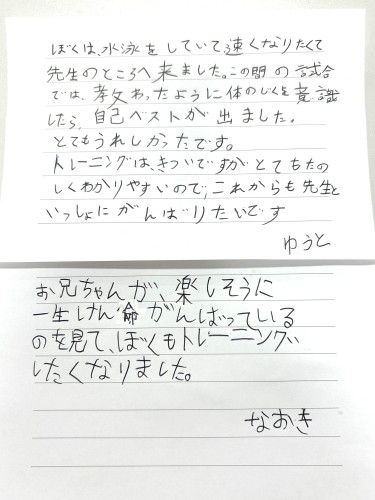 ぼくは、水泳をしていて、速くなりたくて
先生のところへ来ました。この間の試合
では、教わったように体のじくを意識
したら、自己ベストが出ました。
とてもうれしかったです。
トレーニングは、きついですがとてもたの
しくわかりやすいので、これからも先生と
いっしょにがんばりたいです
ゆうと
お兄ちゃんが、楽しそうに
一生けん命がんばっている
のを見て、ぼくもトレーニング
したくなりました。
なおき